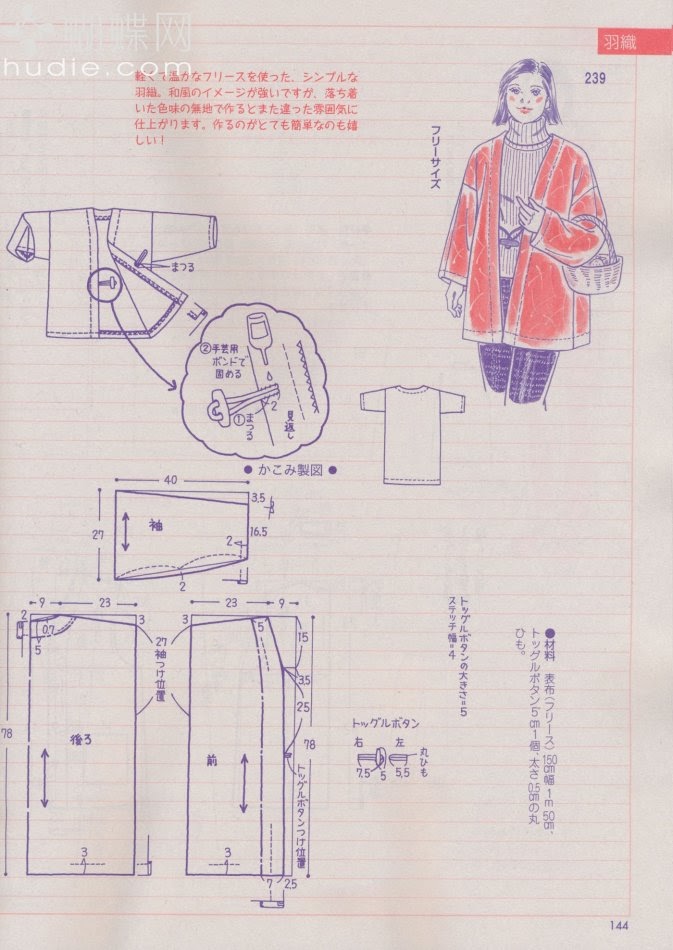 蝴蝶网
hudie.com
羽織
239
軽くて温かなフリースを使った、シンプルな
羽織。和風のイメージが強いですが、落ち着
いた色味の無地で作るとまた違った雰囲気に
仕上がります。作るのがとても簡単なのも嬉
しい！
フリーサイズ
まつる
②手芸用
ボンドで
固める
2
①まつる
見返し
● かこみ製図 ●
40
3.5
27
袖
16.5
2
2
9
23
3
2
0.7
5
78
27
袖つけ位置
後ろ
3
23
9
3
5
15
3.5
25
78
前
トッグルボタンつけ位置
3
7
2.5
トッグルボタンの大きさ=5
ステッチ幅=4
トッグルボタン
右
左
丸ひも
7.5
5
5.5
●材料 表布（フリース）150cm幅 1m50cm、
トッグルボタン5cm1個、太さ0.5cmの丸
ひも。
144